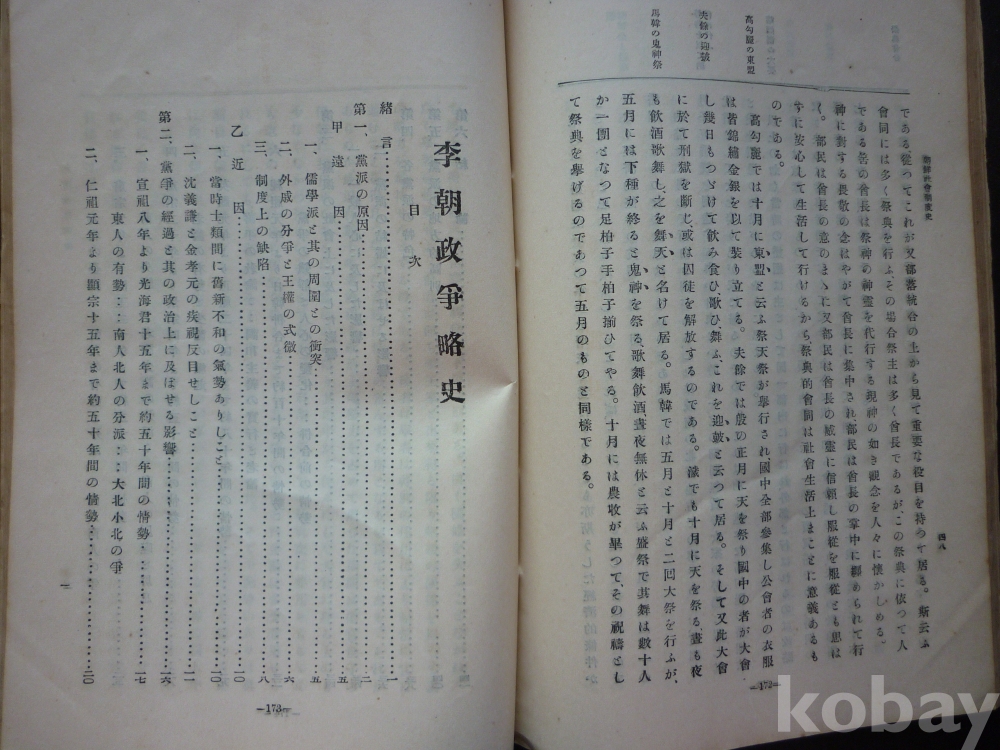 朝鮮社會制度史
四八
である。從つてこれが又部落統合の上から見て重要な役目を持つて居る。斯云ふ
會同には多く祭典を行ふ、その場合祭主は多く酋長であるが、この祭典に依つて人
である筈の酋長は祭神の神靈を代行する現神の如き觀念を人々に懷かしめる。
神に對する畏敬の念はやがて酋長に集中され部民は酋長の掌中に纒められて行
く。部民は酋長の意のまゝに又部民は酋長の威靈に信賴し服從を服從とも思は
ずに安心して生活して行けるから祭典的會同は社會生活上まことに意義あるも
のである。
高句麗の東盟
高勾麗では十月に東盟と云ふ祭天祭が擧行され、國中全部參集し公會者の衣服
は皆錦繡金銀を以て裝り立てる。夫餘では殷の正月に天を祭り國中の者が大會
夫餘の迎鼓
し幾日もつゞけて飮み食ひ、歌ひ、舞ふ、これを迎鼓と云つて居る。そして又此大會
に於て刑獄を斷じ、或は囚徒を解放するのである。濊でも十月に天を祭る晝も夜
も飮酒歌舞し、之を舞天と名けて居る。馬韓では五月と十月と二回大祭を行ふが、
馬韓の鬼神祭
五月には下種が終ると鬼神を祭る、歌舞飮酒、晝夜無休と云ふ盛祭で其舞は數十人
か一團となつて足柏子手柏子揃ひてやる。十月には農收が畢つて、その祝禱とし
て祭典を擧げるのであつて五月のものと同樣である。
—172—
李朝政爭略史
目次
緖言……一
第一、黨派の原因……二
甲 遠因……五
一、儒學派と其の周圍との衝突……五
二、外戚の分爭と王權の式微……六
三、制度上の缺陷……八
乙 近因……一〇
一、當時士類間に舊新不和の氣勢ありしこと……一〇
二、沈義謙と金孝元の疾視反目せしこと……一一
第二、黨爭の經過と其の政治上に及ぼせる影響……一六
一、宣祖八年より光海君十五年まで約五十年間の情勢……一七
東人の有勢……南人北人の分派……大北小北の爭
二、仁祖元年より顯宗十五年まで約五十年間の情勢……二〇
一
—173—
kobay